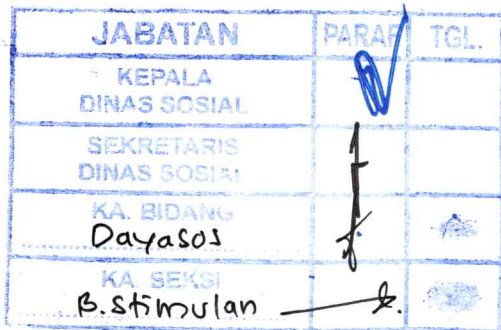 JABATAN PARAF TGL.
KEPALA
DINAS SOSIAL
SEKRETARIS
DINAS SOSIAL
KA. BIDANG
Dayasos
KA. SEKSI
B. Stimulan